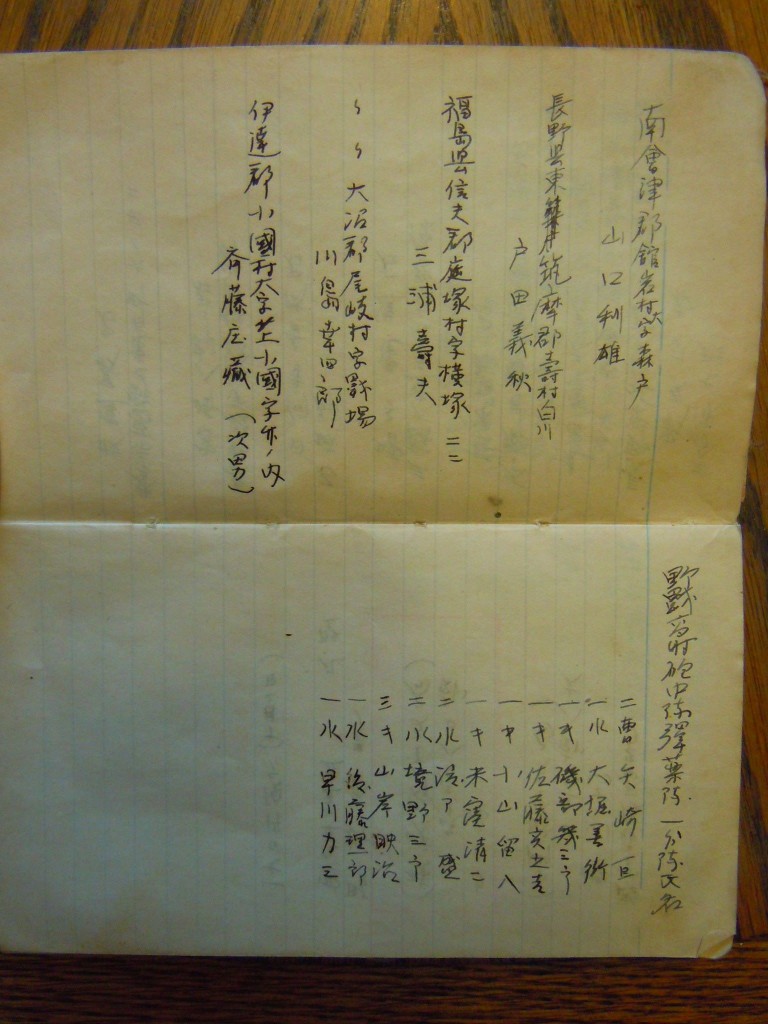 南會津郡舘岩村大字森戸
山口利雄
長野県東筑摩郡壽村白川
戸田義秋
福島県信夫郡庭塚村字横塚 二二
三浦壽夫
〃 〃 大沼郡尾岐村字
川島幸四郎
伊達郡小國村大字上小國字竹ノ内
斉藤庄藏 (次男)
野戰高射砲中隊彈薬隊一分隊氏名
二曹 矢崎 亘
一水 大堀善衛
一キ 磯部幾三郎
一キ 佐藤亥之吉
一キ 小山留八
一キ 米窪清二
二水 盛
二水 境野三郎
三キ 山岸映治
一水 後藤理一郎
一水 早川力三